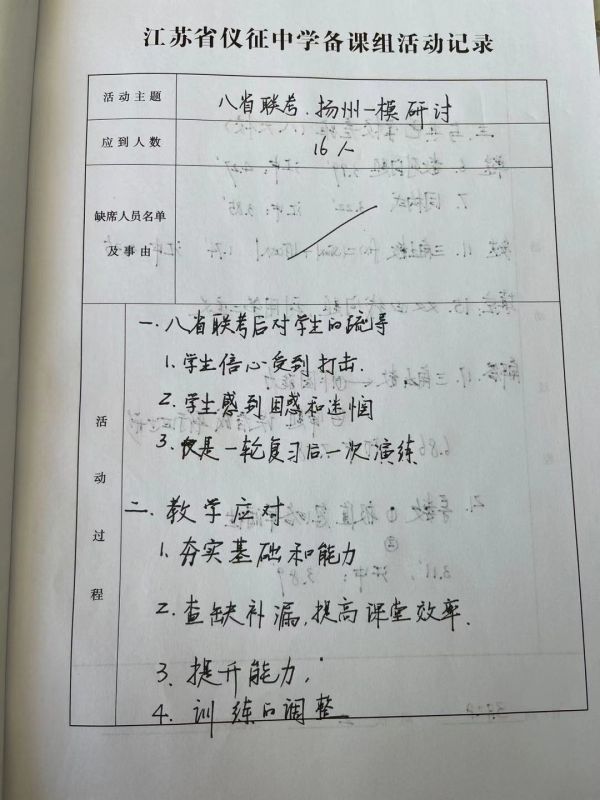 江苏省仪征中学备课组活动记录
活动主题
八省联考、扬州一模研讨
应到人数
16人
缺席人员名单
及事由
活动过程
一、八省联考后对学生的疏导
1、学生信心受到打击.
2、学生感到困惑和迷惘
3、仅是一轮复习后一次演练
二、教学应对
1、夯实基础和能力
2、查缺补漏,提高课堂效率.
3、提升能力,
4、训练的调整